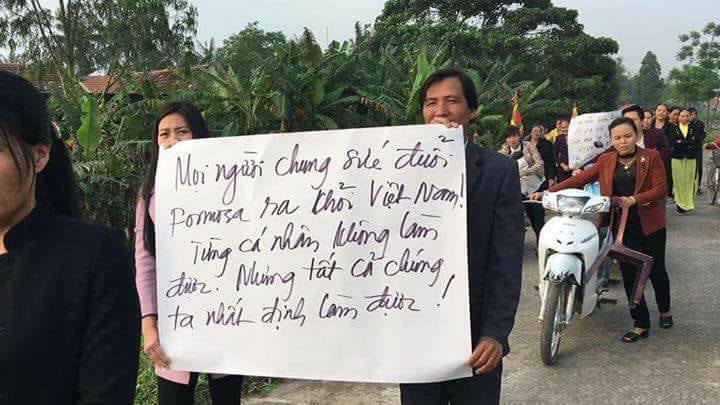 Mọi người chung sức đuổi
Formosa ra khỏi Việt Nam!
Từng cá nhân không làm
được. Nhưng tất cả chúng
ta nhất định làm được!